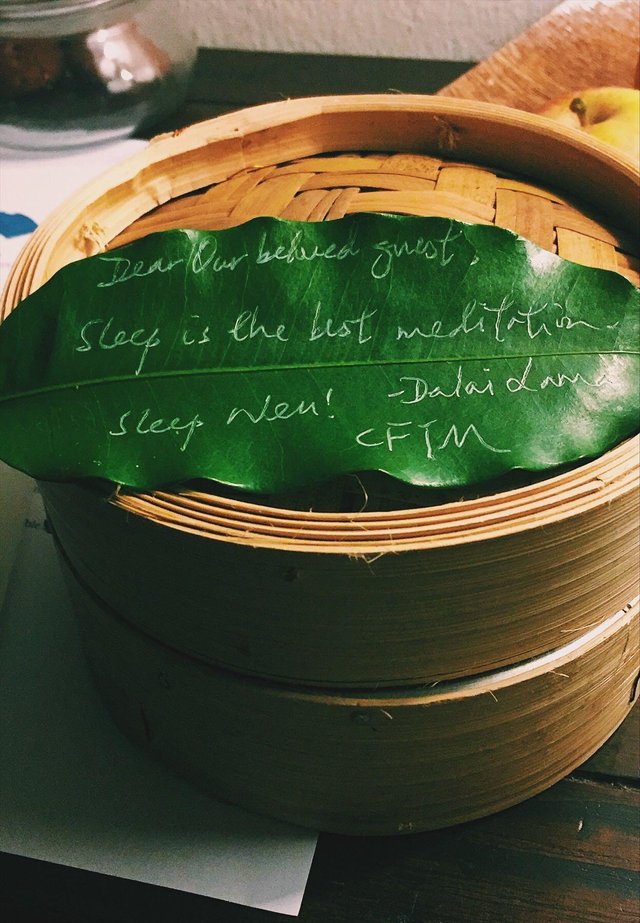 Dear Our beloved guest,
Sleep is the best meditation.
-Dalai Lama
Sleep well!
CFTM